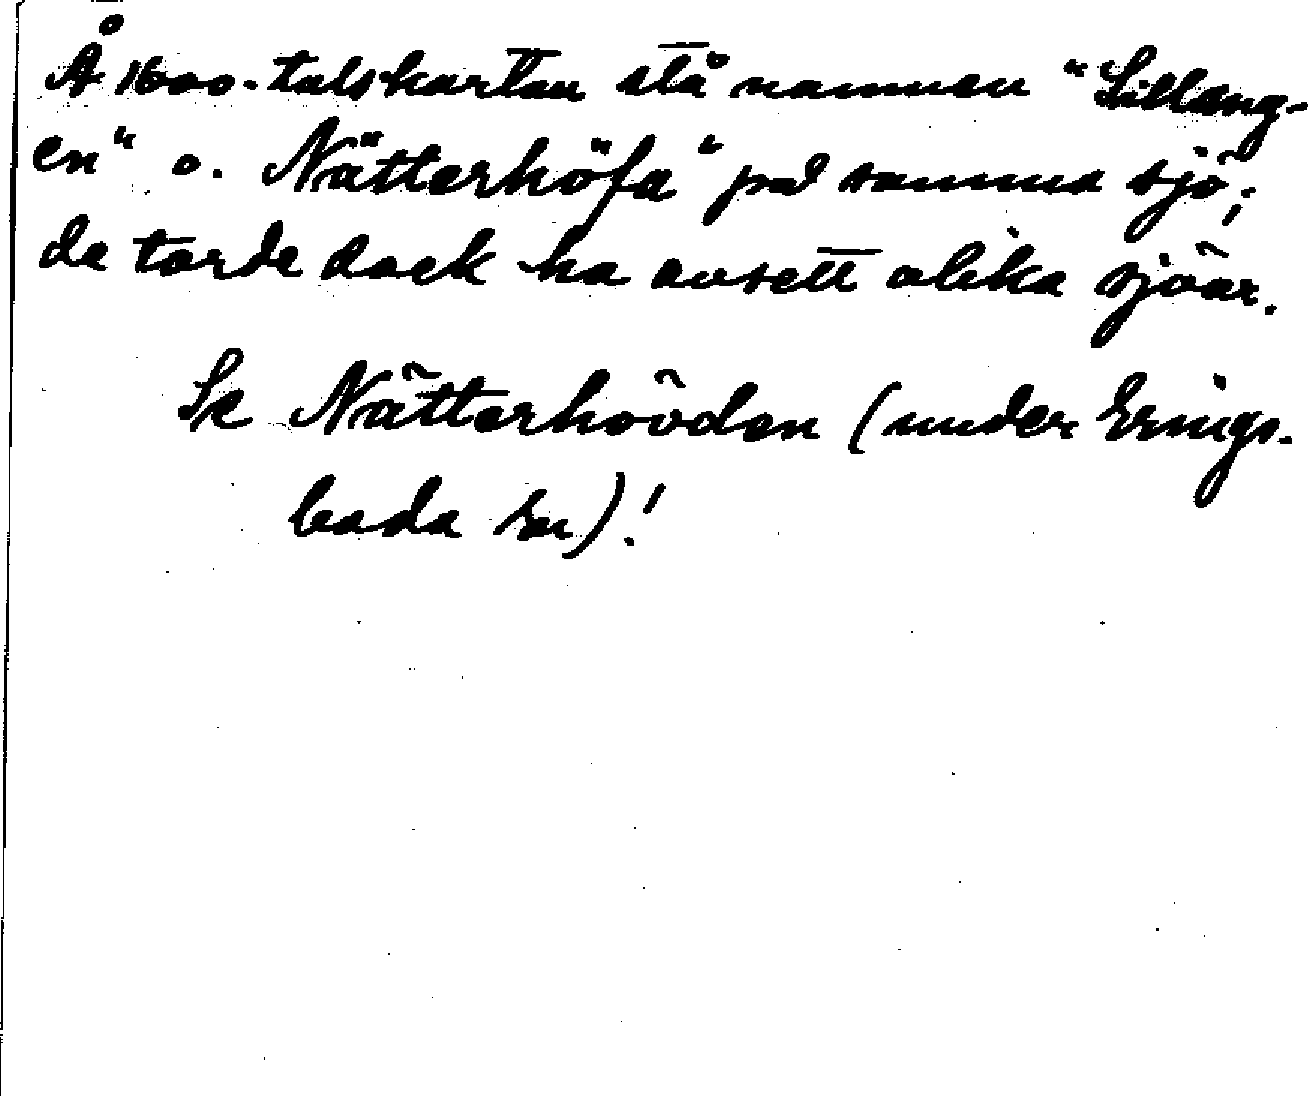 Å 1600-talskartan stå namnen "Lillång-
en" o. Nätterhöfa" på samma sjö;
de torde dock ha avsett olika sjöar.
Se Nätterhövden (under Erings-
boda sn)!